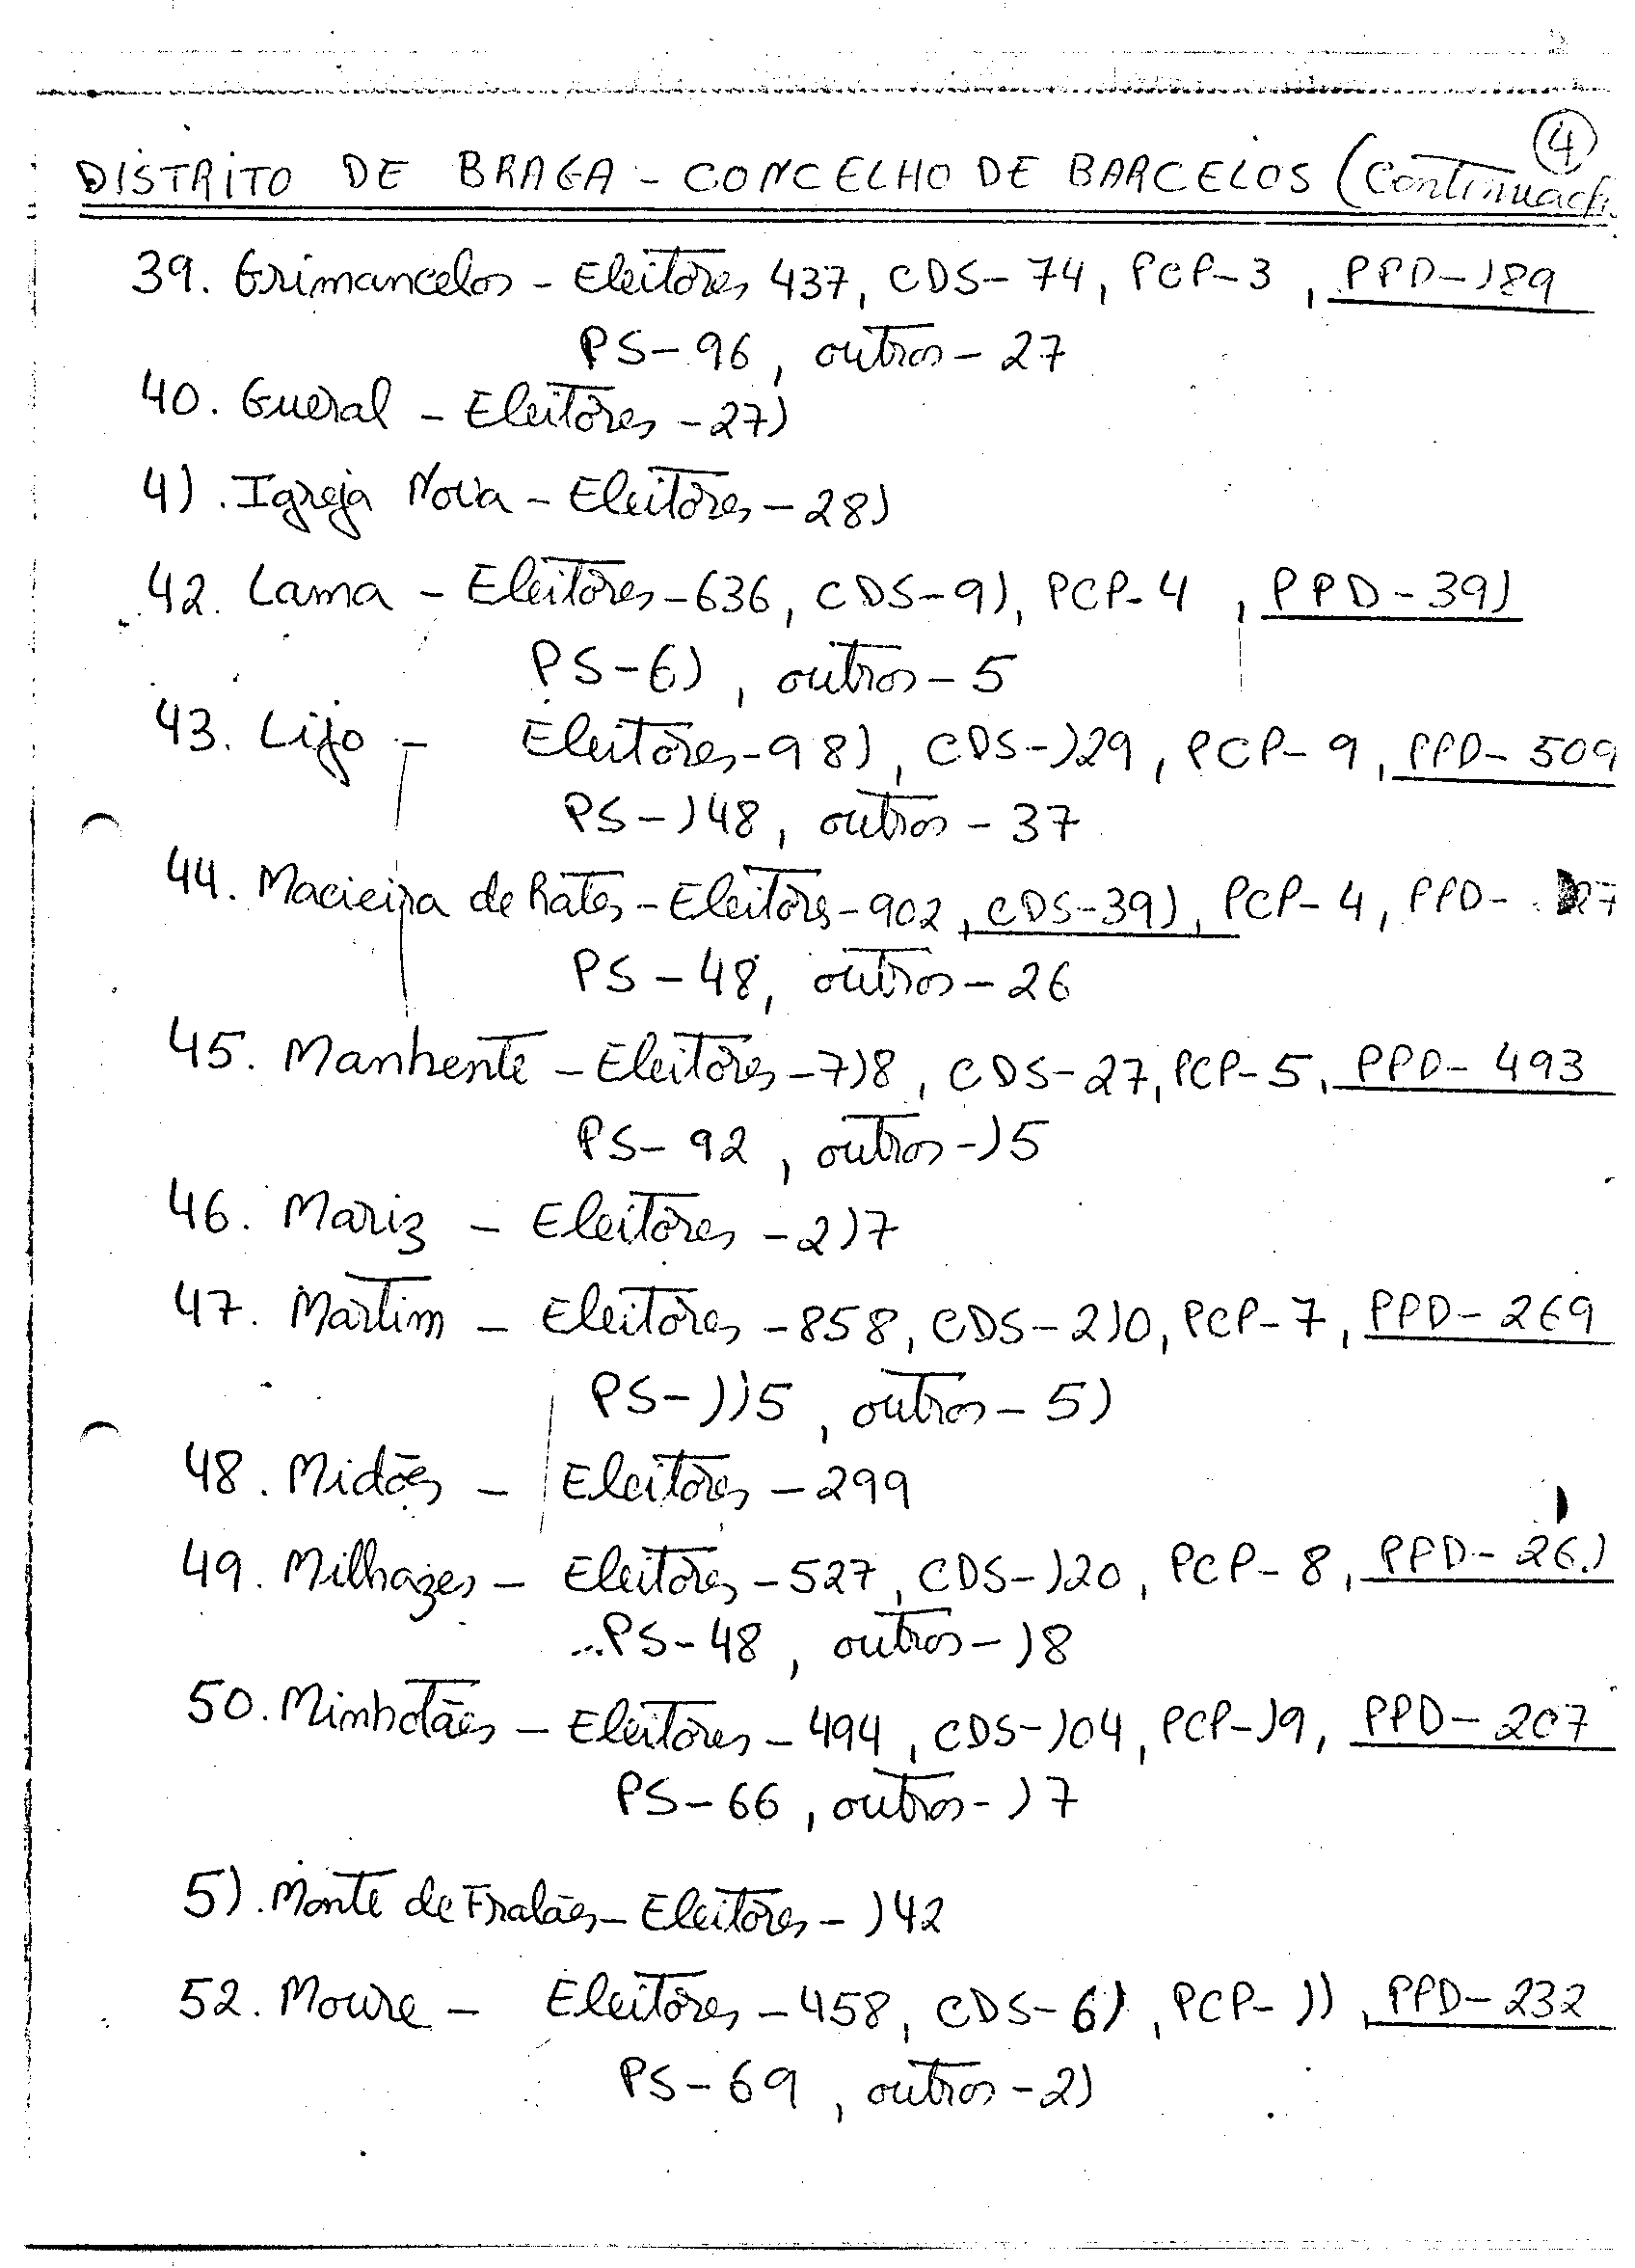 4
DISTRITO DE BRAGA - CONCELHO DE BARCELOS (Continuaçã
39. Grimancelos - Eleitores 437, CDS-74, PCP-3, PPD-189
PS-96, outros-27
40. Gueral - Eleitores-271
41. Igreja Nova - Eleitores-281
42. Lama - Eleitores-636, CDS-91, PCP-4, PPD-391
PS-61, outros-5
43. Lijo - Eleitores-981, CDS-129, PCP-9, PPD-509
PS-148, outros-37
44. Macieira de Rates - Eleitores-902, CDS-391, PCP-4, PPD-
PS-48, outros-26
45. Manhente - Eleitores-718, CDS-27, PCP-5, PPD-493
PS-92, outros-15
46. Mariz - Eleitores-217
47. Martim - Eleitores-858, CDS-210, PCP-7, PPD-269
PS-115, outros-51
48. Midões - Eleitores-299
49. Milhazes - Eleitores-527, CDS-120, PCP-8, PPD-261
PS-48, outros-18
50. Minhotães - Eleitores-494, CDS-104, PCP-19, PPD-207
PS-66, outros-17
51. Monte de Fralães - Eleitores-142
52. Moure - Eleitores-458, CDS-61, PCP-11, PPD-232
PS-69, outros-21